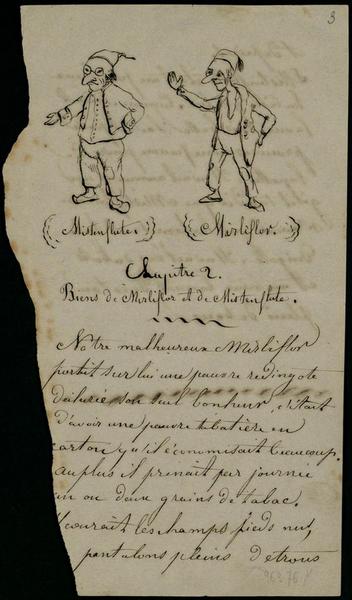 3
Mistenflute.
Mirliflor.
Chapitre 2.
Biens de Mirliflor et de Mistenflute.
Notre malheureux Mirliflor
portait sur lui une pauvre redingote
son seul bonheur, était
d'avoir une pauvre tabatière en
carton qu'il économisait beaucoup.
au plus il prenait par journée
un ou deux grains de tabac.
Il courait les champs pieds nus,
pantalons pleins de trous